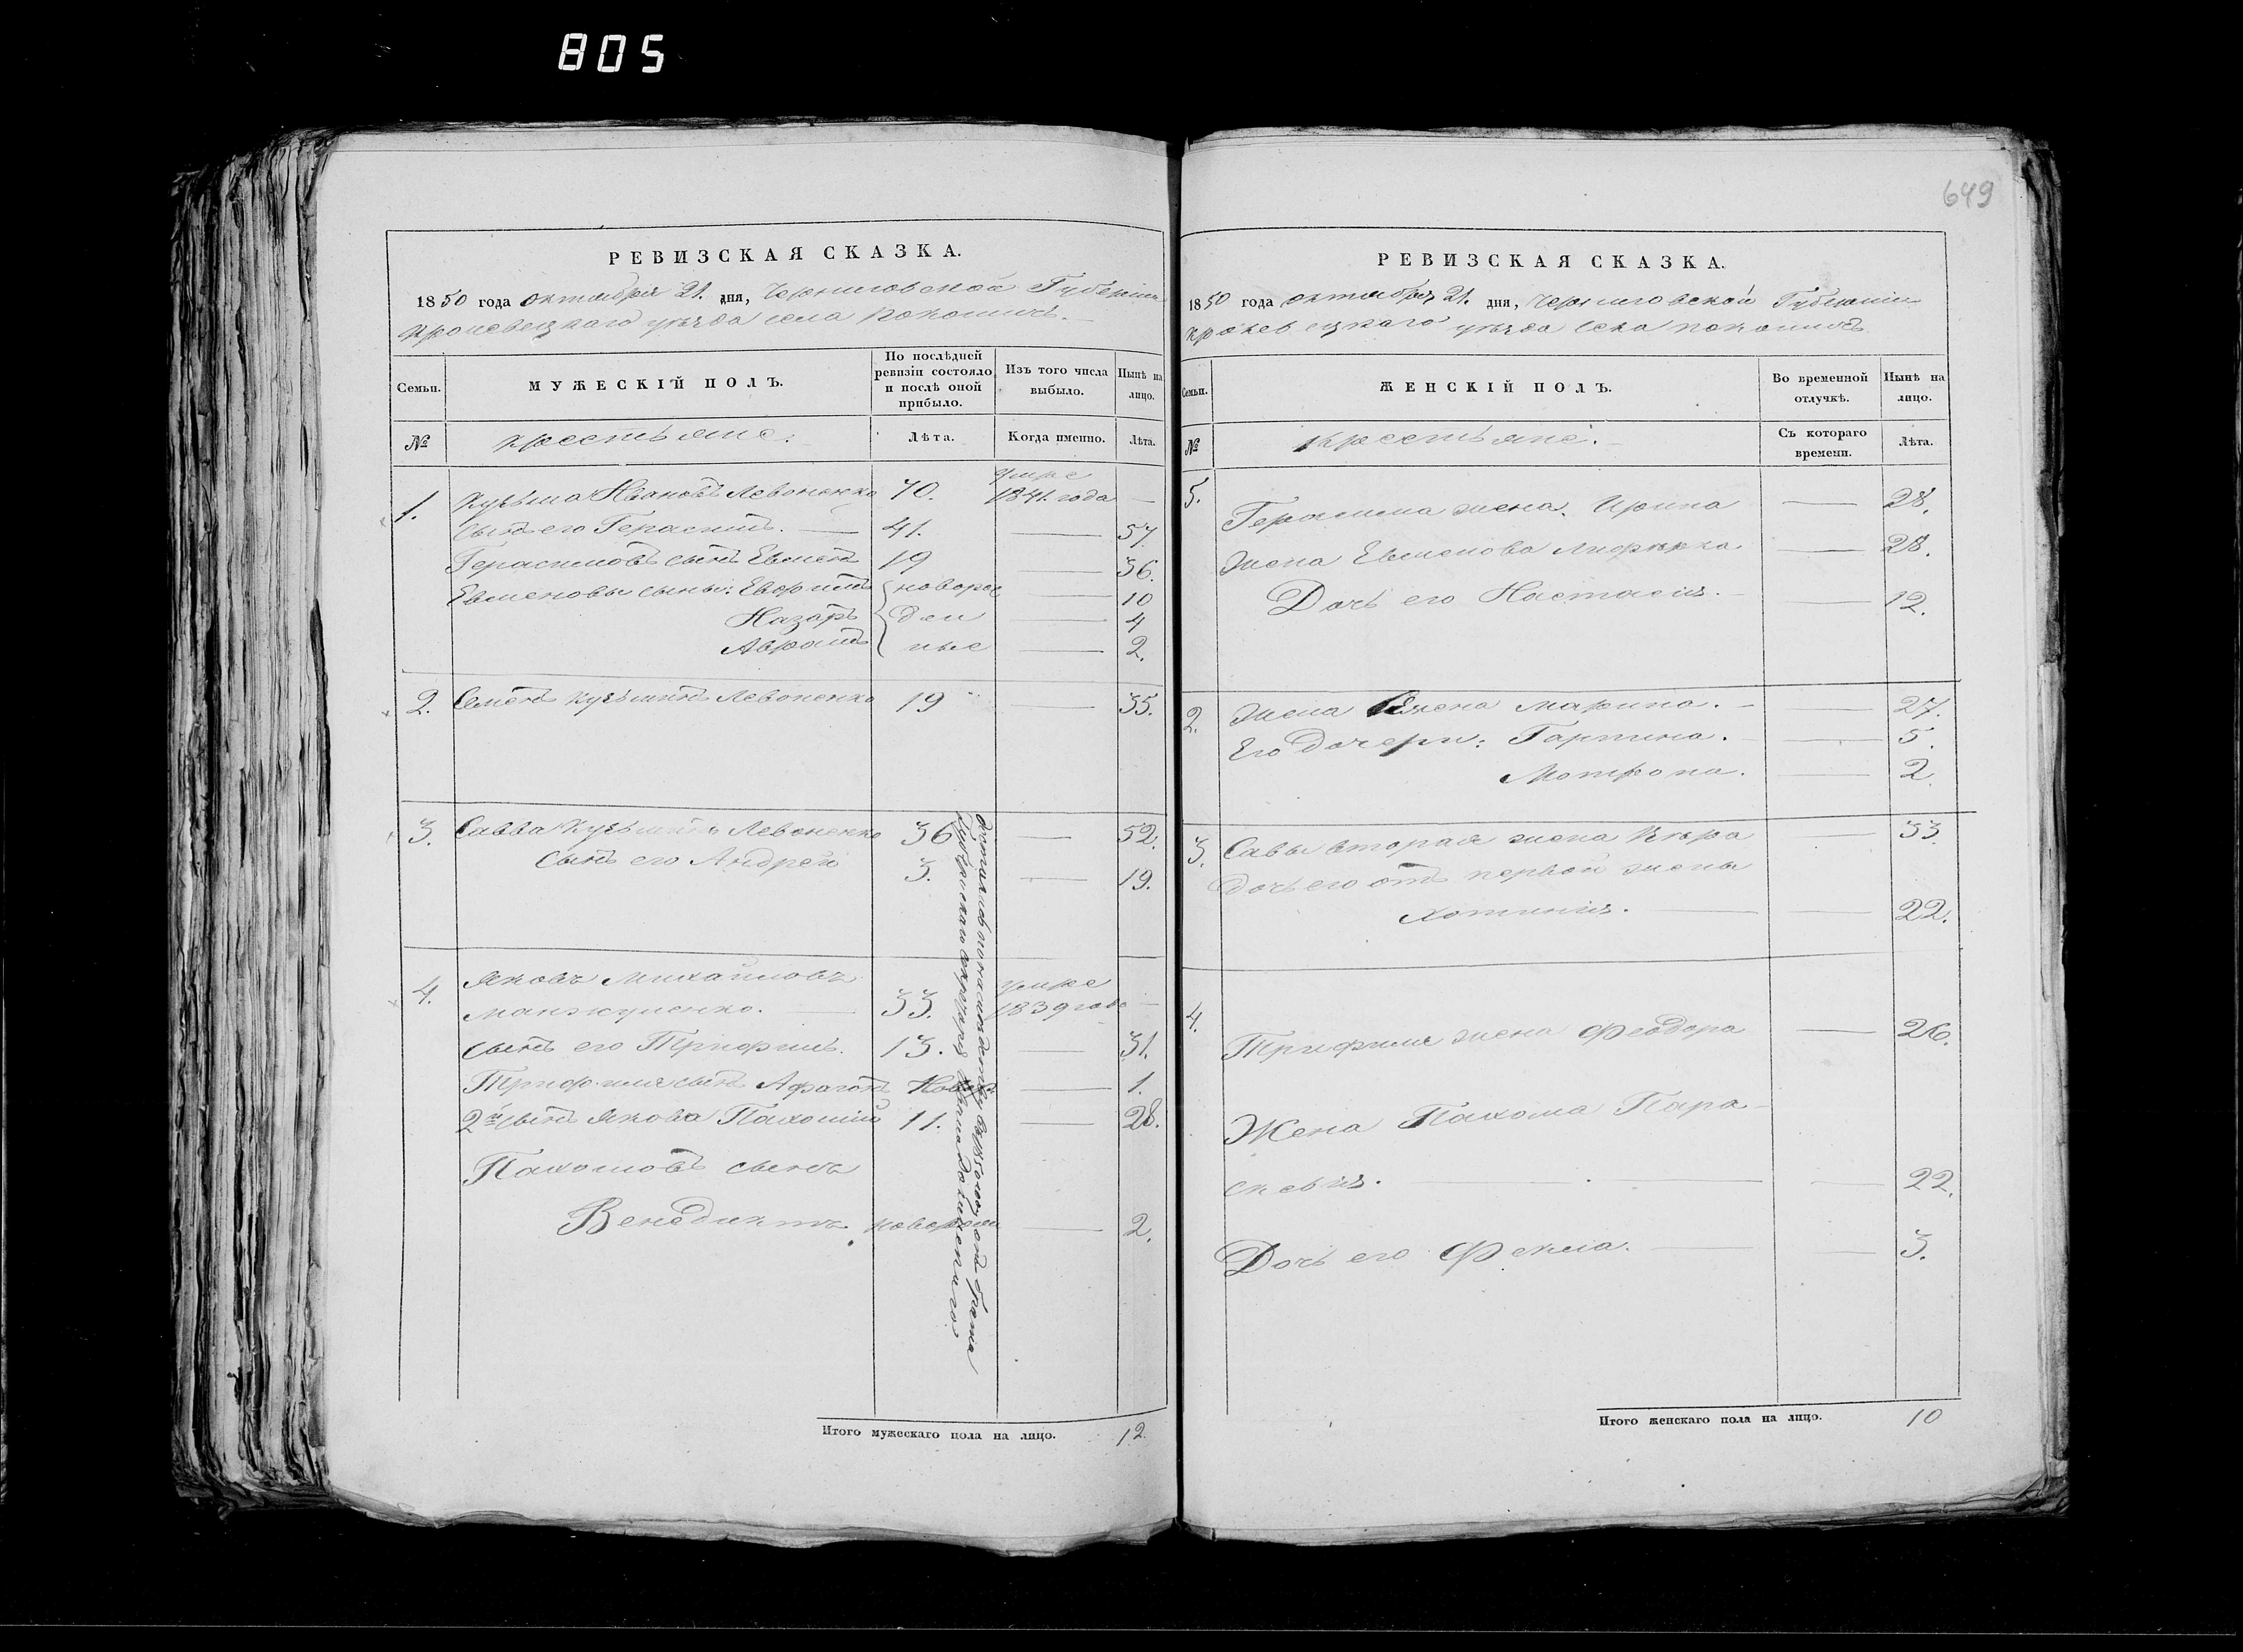 805
649
РЕВИЗСКАЯ СКАЗКА.
1850 года октября 21. дня, Черниговской Губернiи
Кролевецкаго уѣзда села Покошичь.
Семьи.
МУЖЕСКІЙ ПОЛЪ.
По послѣдней ревизіи состояло и послѣ оной прибыло.
Изъ того числа выбыло.
Нынѣ на лицо.
№
крестьяне:
Лѣта.
Когда именно.
Лѣта.
1. Кузьма Ивановъ Левоненко 70. умре 1841. года —
сынъ его Герасимъ. — 41. — 57.
Герасимовъ сынъ Евменъ 19 — 36.
Евменовы сыны: Евфимъ новорож — 10
Назаръ ден — 4
Аврамъ ные — 2.
2. Семенъ Кузьминъ Левоненко 19 — 35.
3. Савва Кузьминъ Левоненко 36 — 52.
Сынъ его Андрей 3. — 19.
4. Яковъ Михайловъ
Манжуленко. — 33. умре 1839 года —
сынъ его Трифимъ. 13. — 31.
Трифима сынъ — 1.
2й сынъ Якова Пахомій 11. — 28.
Пахомовъ сынъ
Венедиктъ новорожд — 2.
Итого мужескаго пола на лицо. 12.
РЕВИЗСКАЯ СКАЗКА.
1850 года октября 21. дня, Черниговской Губернiи
Кролевецкаго уѣзда села Покошичь
Семьи.
ЖЕНСКІЙ ПОЛЪ.
Во временной отлучкѣ.
Нынѣ на лицо.
№
крестьяне.
Съ котораго времени.
Лѣта.
Герасима жена. Ирина — 28.
Жена Евменова — 28.
Дочь его Настасія. — 12.
2. Жена Семена Марина. — 27.
Его дочери: Гарпина. — 5.
Мотрона. — 2.
3. Савы вторая жена Вѣра — 33.
Дочь его отъ первой жены
Хотинія. — 22.
4.
Трифима жена Феодора — 26.
Жена Пахома Пара-
скевія. — 22.
Дочь его Фекла. — 3.
Итого женскаго пола на лицо. 10